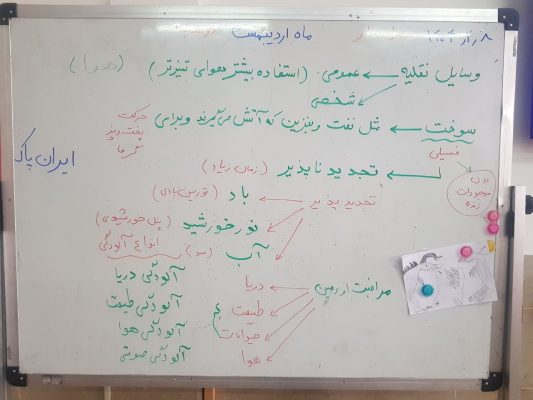 ماه اردیبهشت
وسایل نقلیه ← عمومی. (استفاده بیشتر هوای تمیزتر) (هوا)
شخصی
سوخت ← مثل نفت و بنزین که آتش می‌گیرند و برای
حرکت
پخت و پز
گرما
ایران پاک
فسیلی
بدن موجودات زنده
تجدید ناپذیر (زمان زیاد)
تجدید پذیر ← باد
نور خورشید (پنل خورشیدی)
آب (سد)
انواع آلودگی
آلودگی دریا
آلودگی طبیعت
آلودگی هوا
آلودگی صوتی
مراقبت از زمین
دریا
طبیعت
حیوانات
هوا